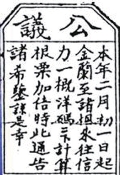 公議
本年二月初一日起
金蘭至諸來往信
力一概洋碼計算
加倍特此通告
諸希鑒諒是幸